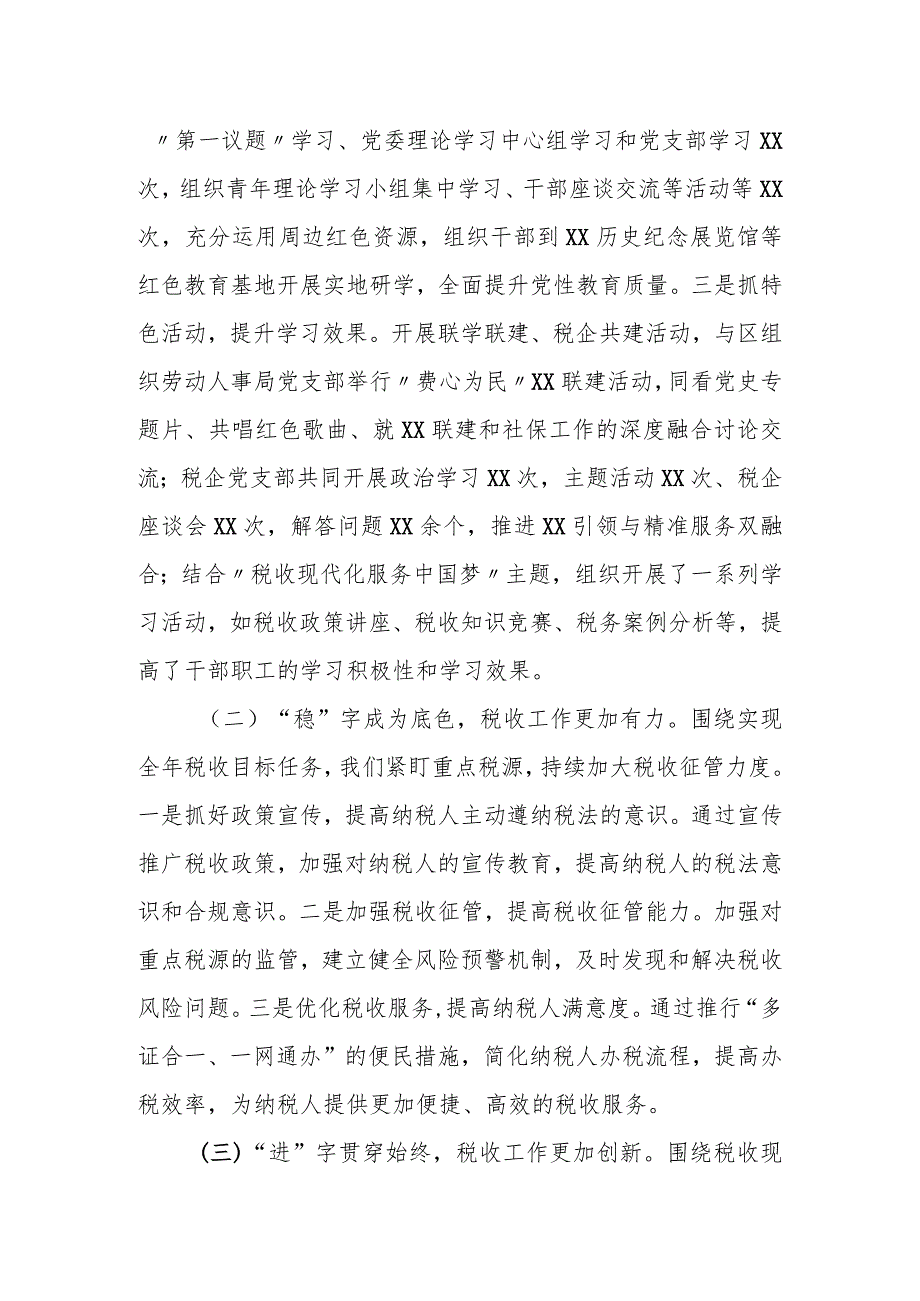 〃第一议题〃学习、党委理论学习中心组学习和党支部学习 XX
次，组织青年理论学习小组集中学习、干部座谈交流等活动等 XX
次，充分运用周边红色资源，组织干部到 XX 历史纪念展览馆等
红色教育基地开展实地研学，全面提升党性教育质量。三是抓特
色活动，提升学习效果。开展联学联建、税企共建活动，与区组
织劳动人事局党支部举行〃费心为民〃XX 联建活动，同看党史专
题片、共唱红色歌曲、就 XX 联建和社保工作的深度融合讨论交
流；税企党支部共同开展政治学习 XX 次，主题活动 XX 次、税企
座谈会 XX 次，解答问题 XX 余个，推进 XX 引领与精准服务双融
合；结合〃税收现代化服务中国梦〃主题，组织开展了一系列学
习活动，如税收政策讲座、税收知识竞赛、税务案例分析等，提
高了干部职工的学习积极性和学习效果。
（二）“稳”字成为底色，税收工作更加有力。围绕实现
全年税收目标任务，我们紧盯重点税源，持续加大税收征管力度。
一是抓好政策宣传，提高纳税人主动遵纳税法的意识。通过宣传
推广税收政策，加强对纳税人的宣传教育，提高纳税人的税法意
识和合规意识。二是加强税收征管，提高税收征管能力。加强对
重点税源的监管，建立健全风险预警机制，及时发现和解决税收
风险问题。三是优化税收服务,提高纳税人满意度。通过推行“多
证合一、一网通办”的便民措施，简化纳税人办税流程，提高办
税效率，为纳税人提供更加便捷、高效的税收服务。
(三)“进”字贯穿始终，税收工作更加创新。围绕税收现